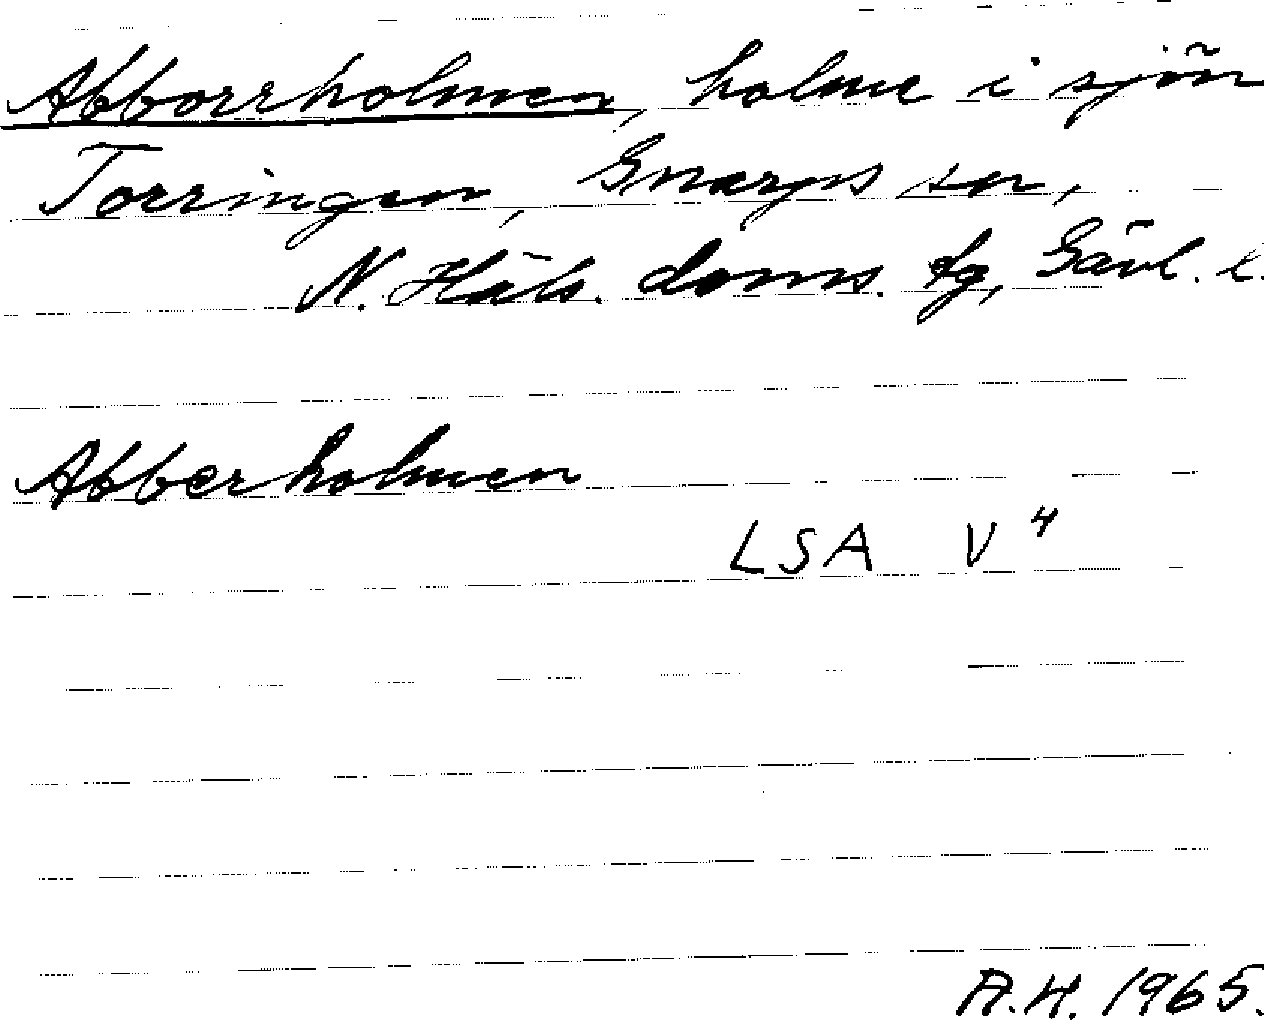 Abborrholmen, holme i sjön
Torringen, Gnarps sn,
N. Häls. doms. tg, Gävl. l.
Abberholmen
LSA V⁴
A.H. 1965.